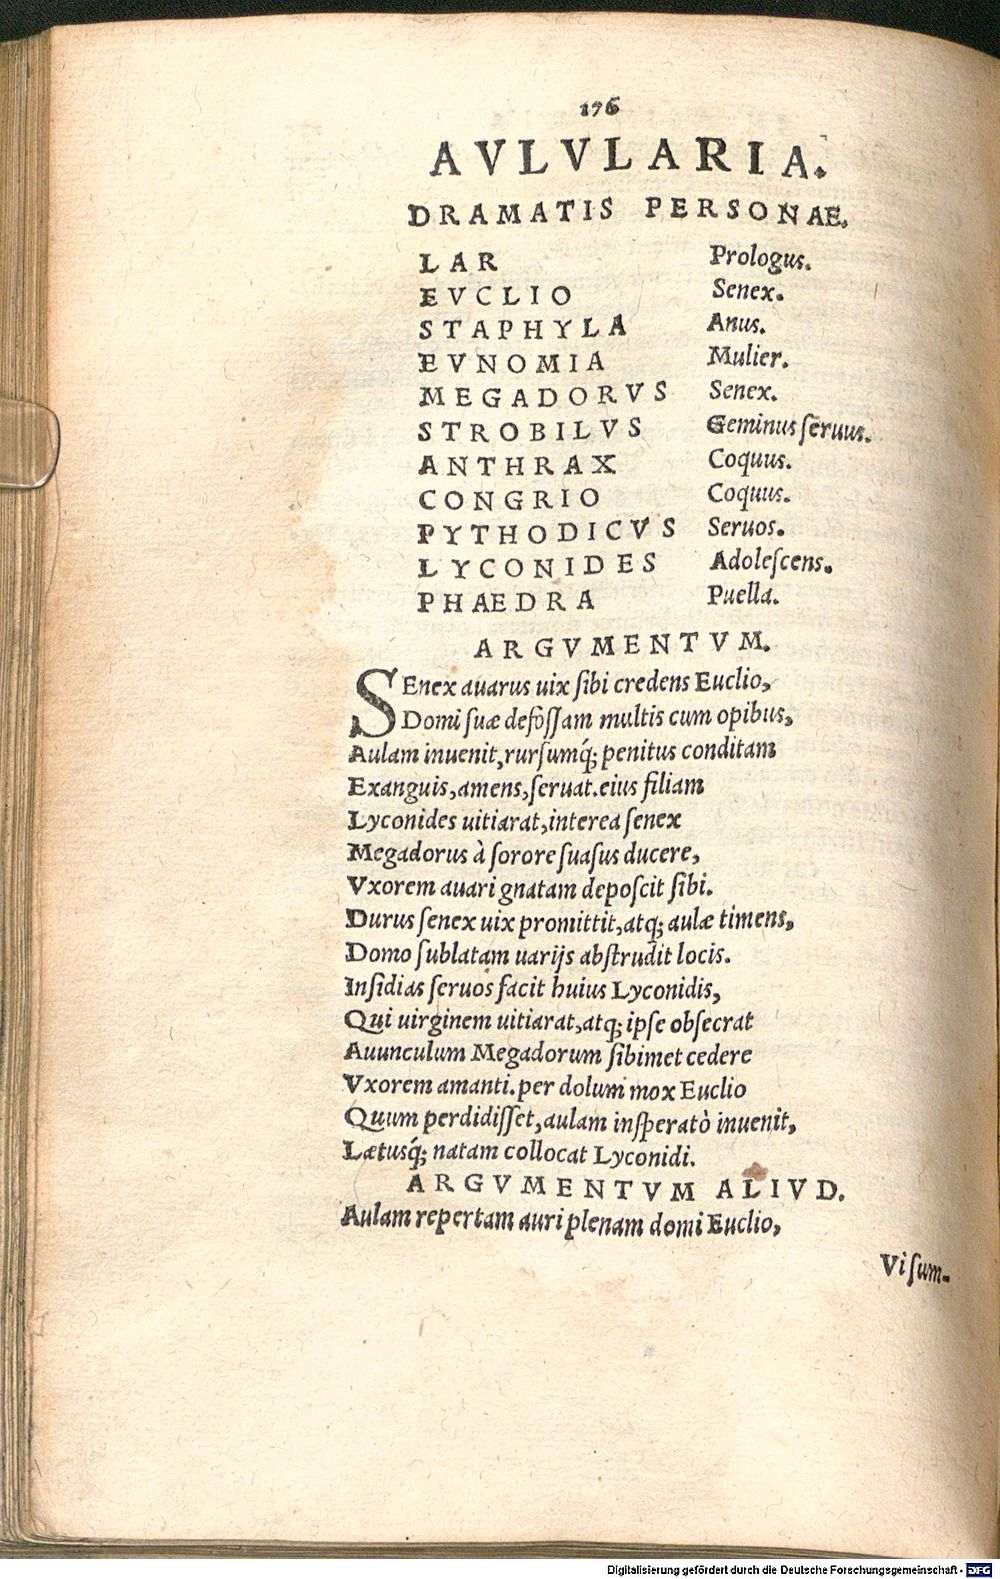 176
AVLVLARIA.
DRAMATIS PERSONAE.
LAR Prologus.
EVCLIO Senex.
STAPHYLA Anus.
EVNOMIA Mulier.
MEGADORVS Senex.
STROBILVS Geminus ſeruus.
ANTHRAX Coquus.
CONGRIO Coquus.
PYTHODICVS Seruos.
LYCONIDES Adoleſcens.
PHAEDRA Puella.
ARGVMENTVM.
SEnex auarus uix ſibi credens Euclio,
Domi ſuæ defoſſam multis cum opibus,
Aulam inuenit, rurſumq́; penitus conditam
Exanguis, amens, ſeruat. eius filiam
Lyconides uitiarat, interea ſenex
Megadorus à ſorore ſuaſus ducere,
Vxorem auari gnatam depoſcit ſibi.
Durus ſenex uix promittit, atq; aulæ timens,
Domo ſublatam uarijs abſtrudit locis.
Inſidias ſeruos facit huius Lyconidis,
Qui uirginem uitiarat, atq; ipſe obſecrat
Auunculum Megadorum ſibimet cedere
Vxorem amanti. per dolum mox Euclio
Quum perdidiſſet, aulam inſperatò inuenit,
Lætusq́; natam collocat Lyconidi.
ARGVMENTVM ALIVD.
Aulam repertam auri plenam domi Euclio,
Viſum-
Digitalisierung gefördert durch die Deutsche Forschungsgemeinschaft - DFG